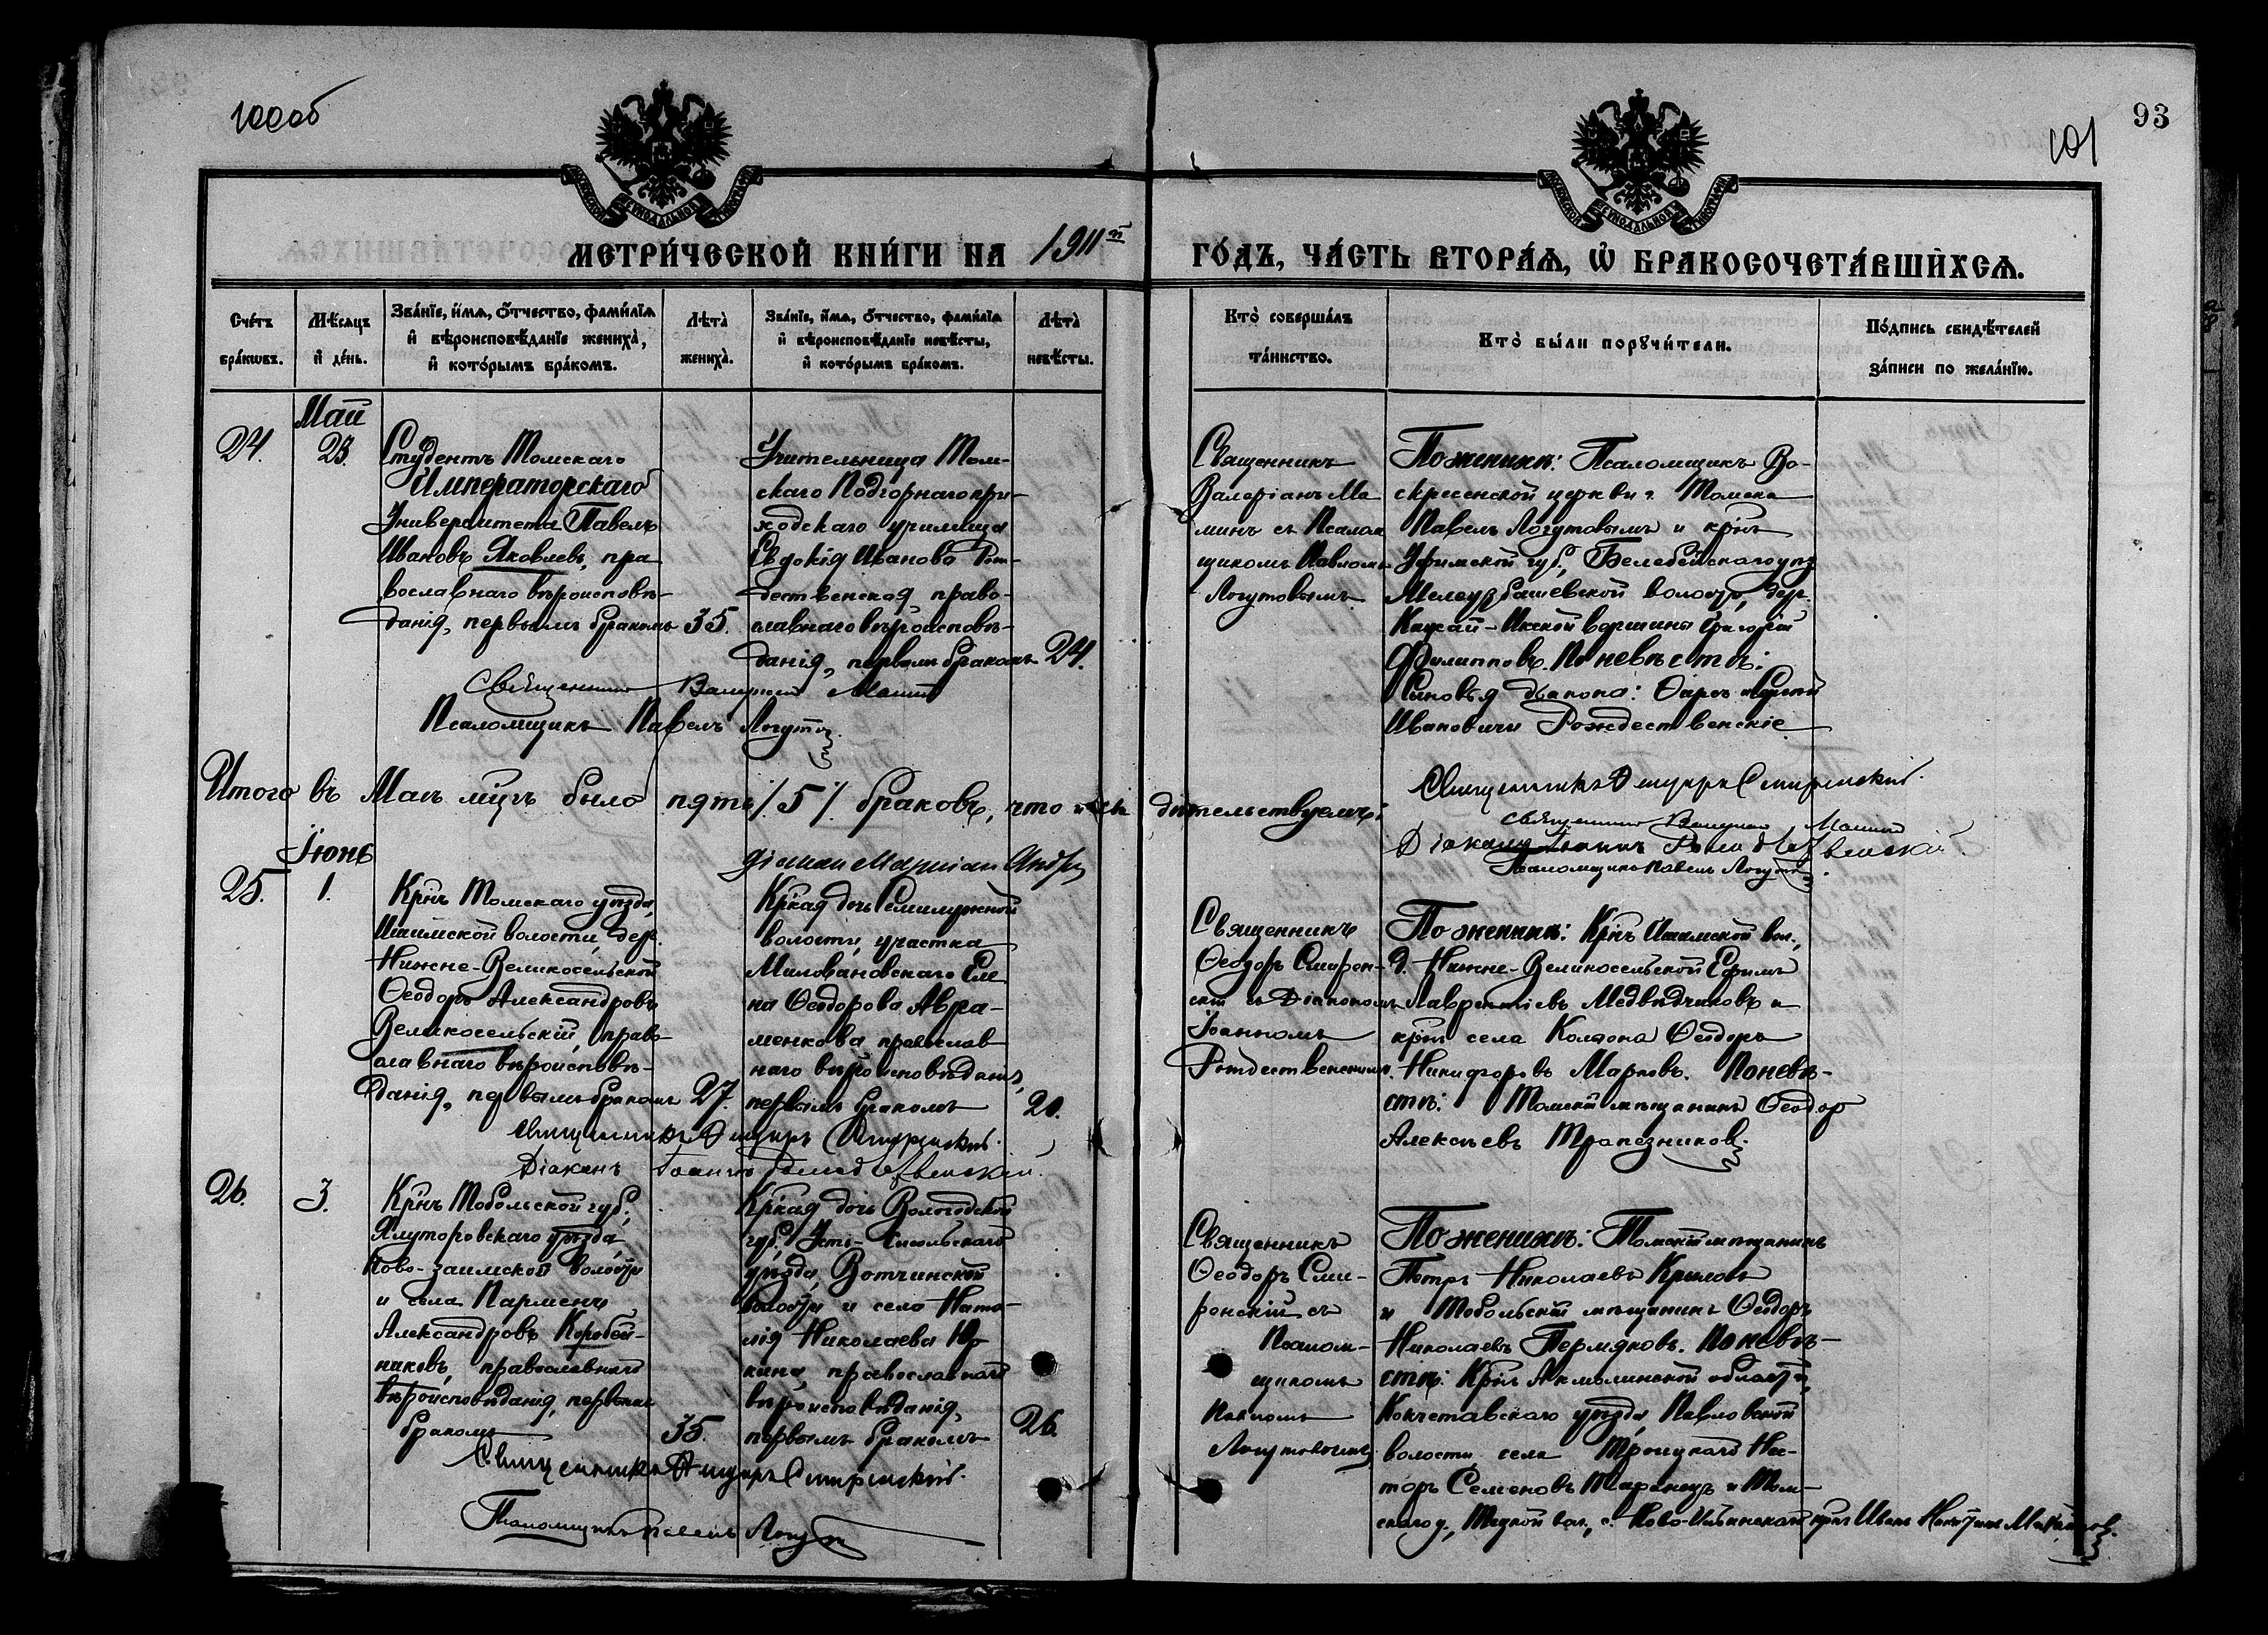 100об
93
101
МЕТРИ́ЧЕСКОЙ КНИ́ГИ НА 1911й ГО́ДЪ, ЧА́СТЬ ВТОРА́Я, Ѡ БРАКОСОЧЕТА́ВШИХСЯ.
Сче́тъ бра́кѡвъ.
Мѣ́сяцъ и де́нь.
Зва́нїе, и́мя, ѻ́тчество, фами́лїя
и вѣроисповѣ́данїе жениха̀,
и кото́рымъ бра́комъ.
Лѣта̀ жениха̀.
Зва́нїе, и́мя, ѻ́тчество, фами́лїя
и вѣроисповѣ́данїе невѣ́сты,
и кото́рымъ бра́комъ.
Лѣта̀ невѣ́сты.
Кто̀ соверша́лъ та́инство.
Кто̀ бы́ли порꙋчи́тели.
По́дпись свидѣ́телей за́писи по жела́нїю.
Май
24.
23.
Студентъ Томскаго
Императорскаго
Университета Павелъ
Ивановъ Яковлевъ, пра
вославнаго вѣроисповѣ-
данія, первымъ бракомъ
35.
Учительница Том-
скаго Подгорнаго при-
ходскаго училища
Евдокія Иванова Рож-
дественская право-
славнаго вѣроисповѣ-
данія, первымъ бракомъ
24.
Священникъ
Валеріанъ Ма
минъ съ Псалом
щикомъ Павломъ
Логутовымъ
По женихѣ: Псаломщикъ Во-
скресенской церкви г. Томска
Павелъ Логутовымъ и крнъ
Уфимской губ., Белебейскаго уѣз
волости, дер.
вершины Григорій
Филипповъ. По невѣстѣ:
Сыновья діакона: и Сергѣй
Ивановичи Рождественскіе
Священникъ Валеріанъ Мамин
Псаломщикъ Павелъ Логутов
Итого въ Маѣ мцѣ было пять /5/ браковъ, что и свидѣтельствуемъ:
Священникъ Ѳеодоръ Смиренскій.
Священникъ Валеріанъ Мамин
Діаконъ Іоаннъ Рождественскій.
Псаломщикъ Павелъ Логутов
Іюнь
25.
1.
Крнъ Томскаго уѣзда,
Ишимской волости, дер.
Нижне-Великосельской
Ѳеодоръ Александровъ
Великосельскій, право
славнаго вѣроисповѣ-
данія, первымъ бракомъ
27.
Кркая дочь Семилужной
волости, участка
Миловановскаго Еле
на Ѳеодорова Авра-
менкова православ
наго вѣроисповѣданія,
первымъ бракомъ
20.
Священникъ
Ѳеодоръ Смирен-
скій съ Діакономъ
Іоанномъ
Рождественскимъ.
По женихѣ: Крнъ Ишимской вол.,
д. Нижне-Великосельской Ефимъ
Лаврентіевъ Медвѣдчиковъ и
крнъ села Колоона Ѳеодоръ
Никифоровъ Марковъ. По невѣ-
стѣ: Томскій мѣщанинъ Ѳеодор
Алексѣевъ Трапезников.
Священникъ Ѳеодоръ Смиренскій.
Діаконъ Іоаннъ Рождественскій.
26.
3.
Крнъ Тобольской губ.,
Ялуторовскаго уѣзда
Ново-заимской волости
и села Парменъ
Александровъ Коробей-
никовъ, православнаго
вѣроисповѣданія, первымъ
бракомъ
35.
Кркая дочь Вологодской
губ., Усть-Сысольскаго
уѣзда, Вотчинской
волости и села Ната-
лія Николаева Юр
кина, православнаго
вѣроисповѣданія,
первымъ бракомъ
26.
Священникъ
Ѳеодоръ Сми-
ренскій съ
Псалом-
щикомъ
Павломъ
Логутовымъ
По женихѣ: Томскій мѣщанинъ
Петръ Николаевъ Крыловъ
и Тобольскій мѣщанинъ Ѳеодоръ
Николаевъ Пермяковъ. По невѣ-
стѣ: Крнъ Акмолинской области,
Кокчетавскаго уѣзда, Павловской
волости, села Троицкаго Нес-
торъ Семеновъ Таранецъ и Том-
скаго у., вол., с. Ново-Ильинскаго крнъ Иванъ
Священникъ Ѳеодоръ Смиренскій.
Псаломщикъ Павелъ Логутов